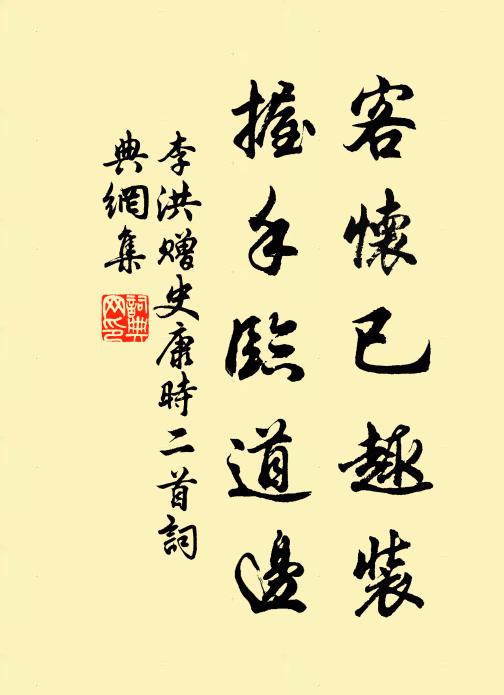 客懷已趣裝
握手臨道邊
李洪赠史康時二首詞
典網集
詞典网印